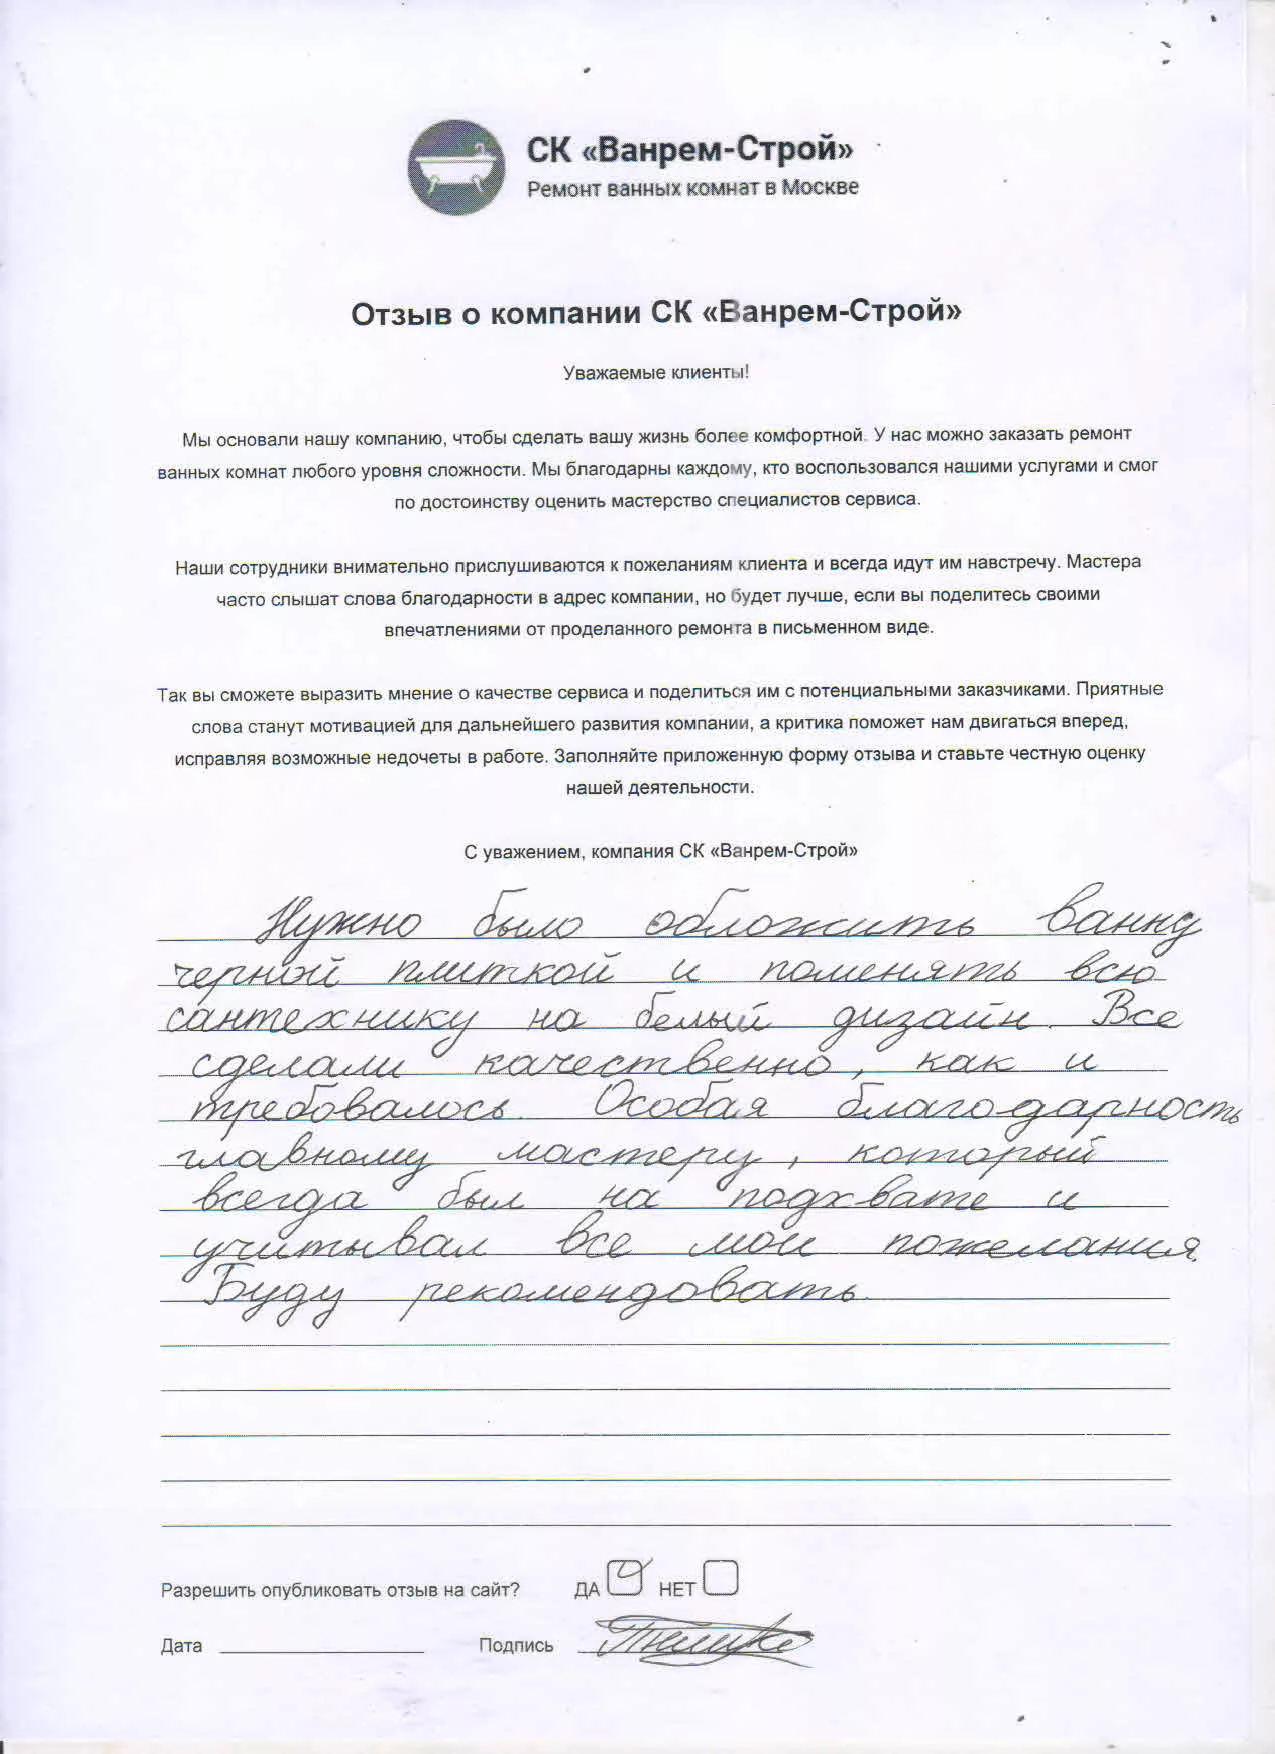 СК «Ванрем-Строй»
Ремонт ванных комнат в Москве
Отзыв о компании СК «Ванрем-Строй»
Уважаемые клиенты!
Мы основали нашу компанию, чтобы сделать вашу жизнь более комфортной. У нас можно заказать ремонт
ванных комнат любого уровня сложности. Мы благодарны каждому, кто воспользовался нашими услугами и смог
по достоинству оценить мастерство специалистов сервиса.
Наши сотрудники внимательно прислушиваются к пожеланиям клиента и всегда идут им навстречу. Мастера
часто слышат слова благодарности в адрес компании, но будет лучше, если вы поделитесь своими
впечатлениями от проделанного ремонта в письменном виде.
Так вы сможете выразить мнение о качестве сервиса и поделиться им с потенциальными заказчиками. Приятные
слова станут мотивацией для дальнейшего развития компании, а критика поможет нам двигаться вперед,
исправляя возможные недочеты в работе. Заполняйте приложенную форму отзыва и ставьте честную оценку
нашей деятельности.
С уважением, компания СК «Ванрем-Строй»
Нужно было обложить ванну
черной плиткой и поменять всю
сантехнику на белый дизайн. Все
сделали качественно, как и
требовалось. Особая благодарность
главному мастеру, который
всегда был на подхвате и
учитывал все мои пожелания.
Буду рекомендовать.
Разрешить опубликовать отзыв на сайт? ДА НЕТ
Дата Подпись